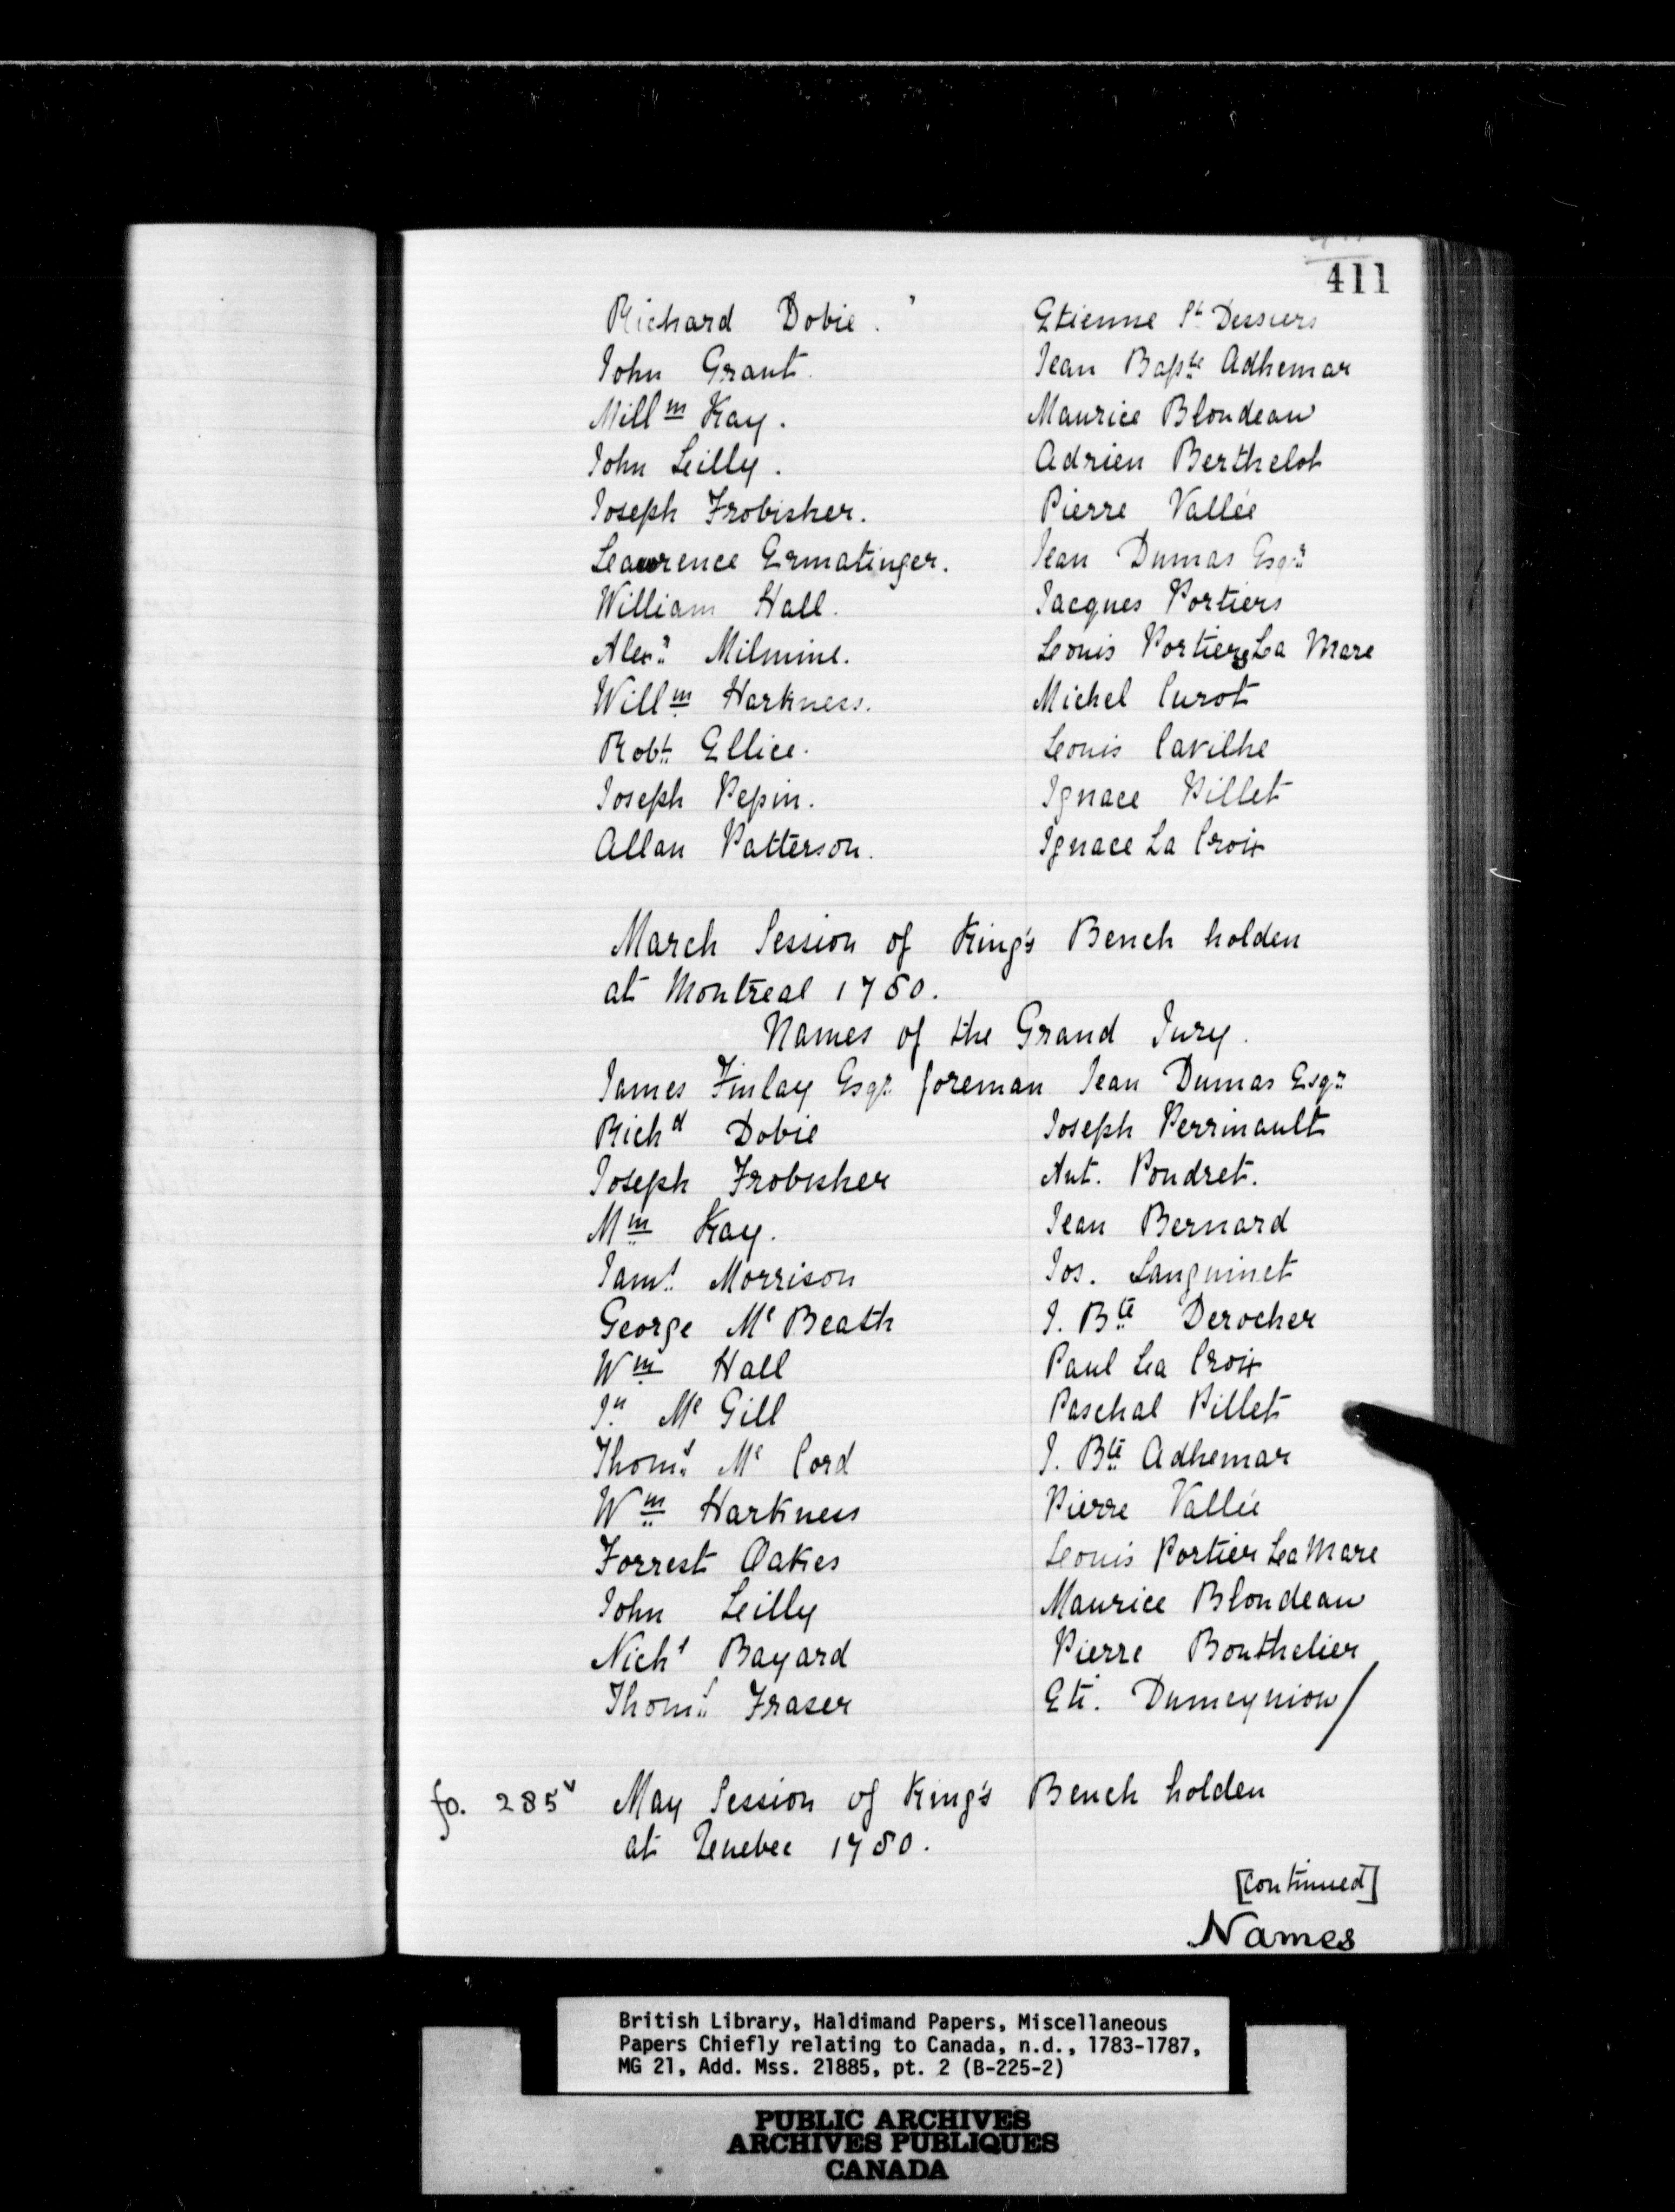 411
Richard Dobie. Etienne St Dessiers
John Grant. Jean Bapte Adhemar
Willm Kay. Maurice Blondeau
John Lilly. Adrien Berthelot
Joseph Frobisher. Pierre Vallée
Leawrence Ermatinger. Jean Dumas Esqr
William Hall. Jacques Portiers
Alexr Milmine. Louis Portiers La Mare
Willm Harkness. Michel Curot
Robt Ellice. Louis Cavilhe
Joseph Pepin. Ignace Pillet
Allan Patterson. Ignace La Croix
March Session of King's Bench holden
at Montreal 1780.
Names of the Grand Jury.
James Finlay Esqr foreman Jean Dumas Esqr
Richd Dobie Joseph Perrinault
Joseph Frobisher Ant. Poudret.
Wm Kay. Jean Bernard
Jams Morrison Jos. Sanguinet
George Mc Beath J. Bte Derocher
Wm Hall Paul La Croix
Jn Mc Gill Paschal Pillet
Thoms Mc Cord J. Bte Adhemar
Wm Harkness Pierre Vallée
Forrest Oakes Louis Portier La Mare
John Lilly Maurice Blondeau
Nichs Bayard Pierre Bouthelier
Thoms Fraser Eti. Dumeynion/
fo. 285v May Session of King's Bench holden
at Quebec 1780.
[continued]
Names
British Library, Haldimand Papers, Miscellaneous
Papers Chiefly relating to Canada, n.d., 1783-1787,
MG 21, Add. Mss. 21885, pt. 2 (B-225-2)
PUBLIC ARCHIVES
ARCHIVES PUBLIQUES
CANADA